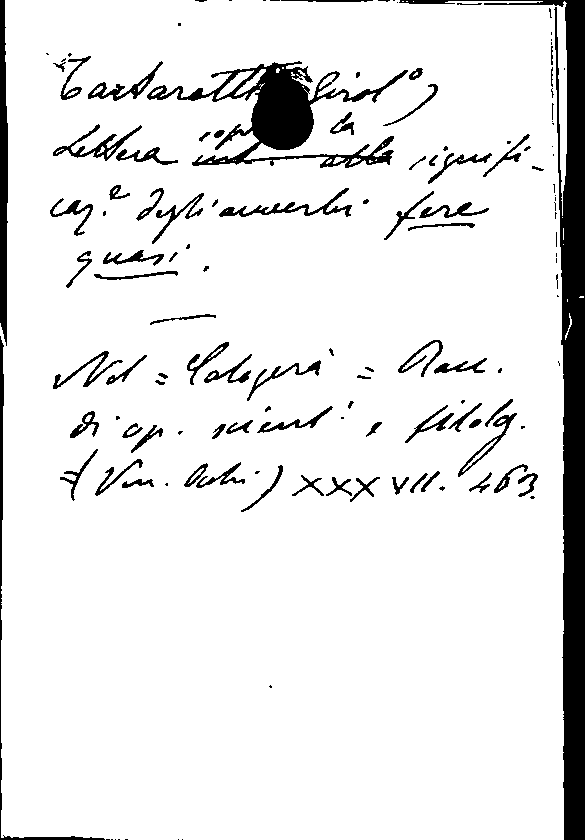 Tartarotti Girol°,
sopra la
Lettera int. alla signifi-
caz.e degli avverbi fere
quasi.
Nel = Calogerà = Racc.
di op. scient.i e filolog.
=(Ven. Occhi) XXXVII. 463.